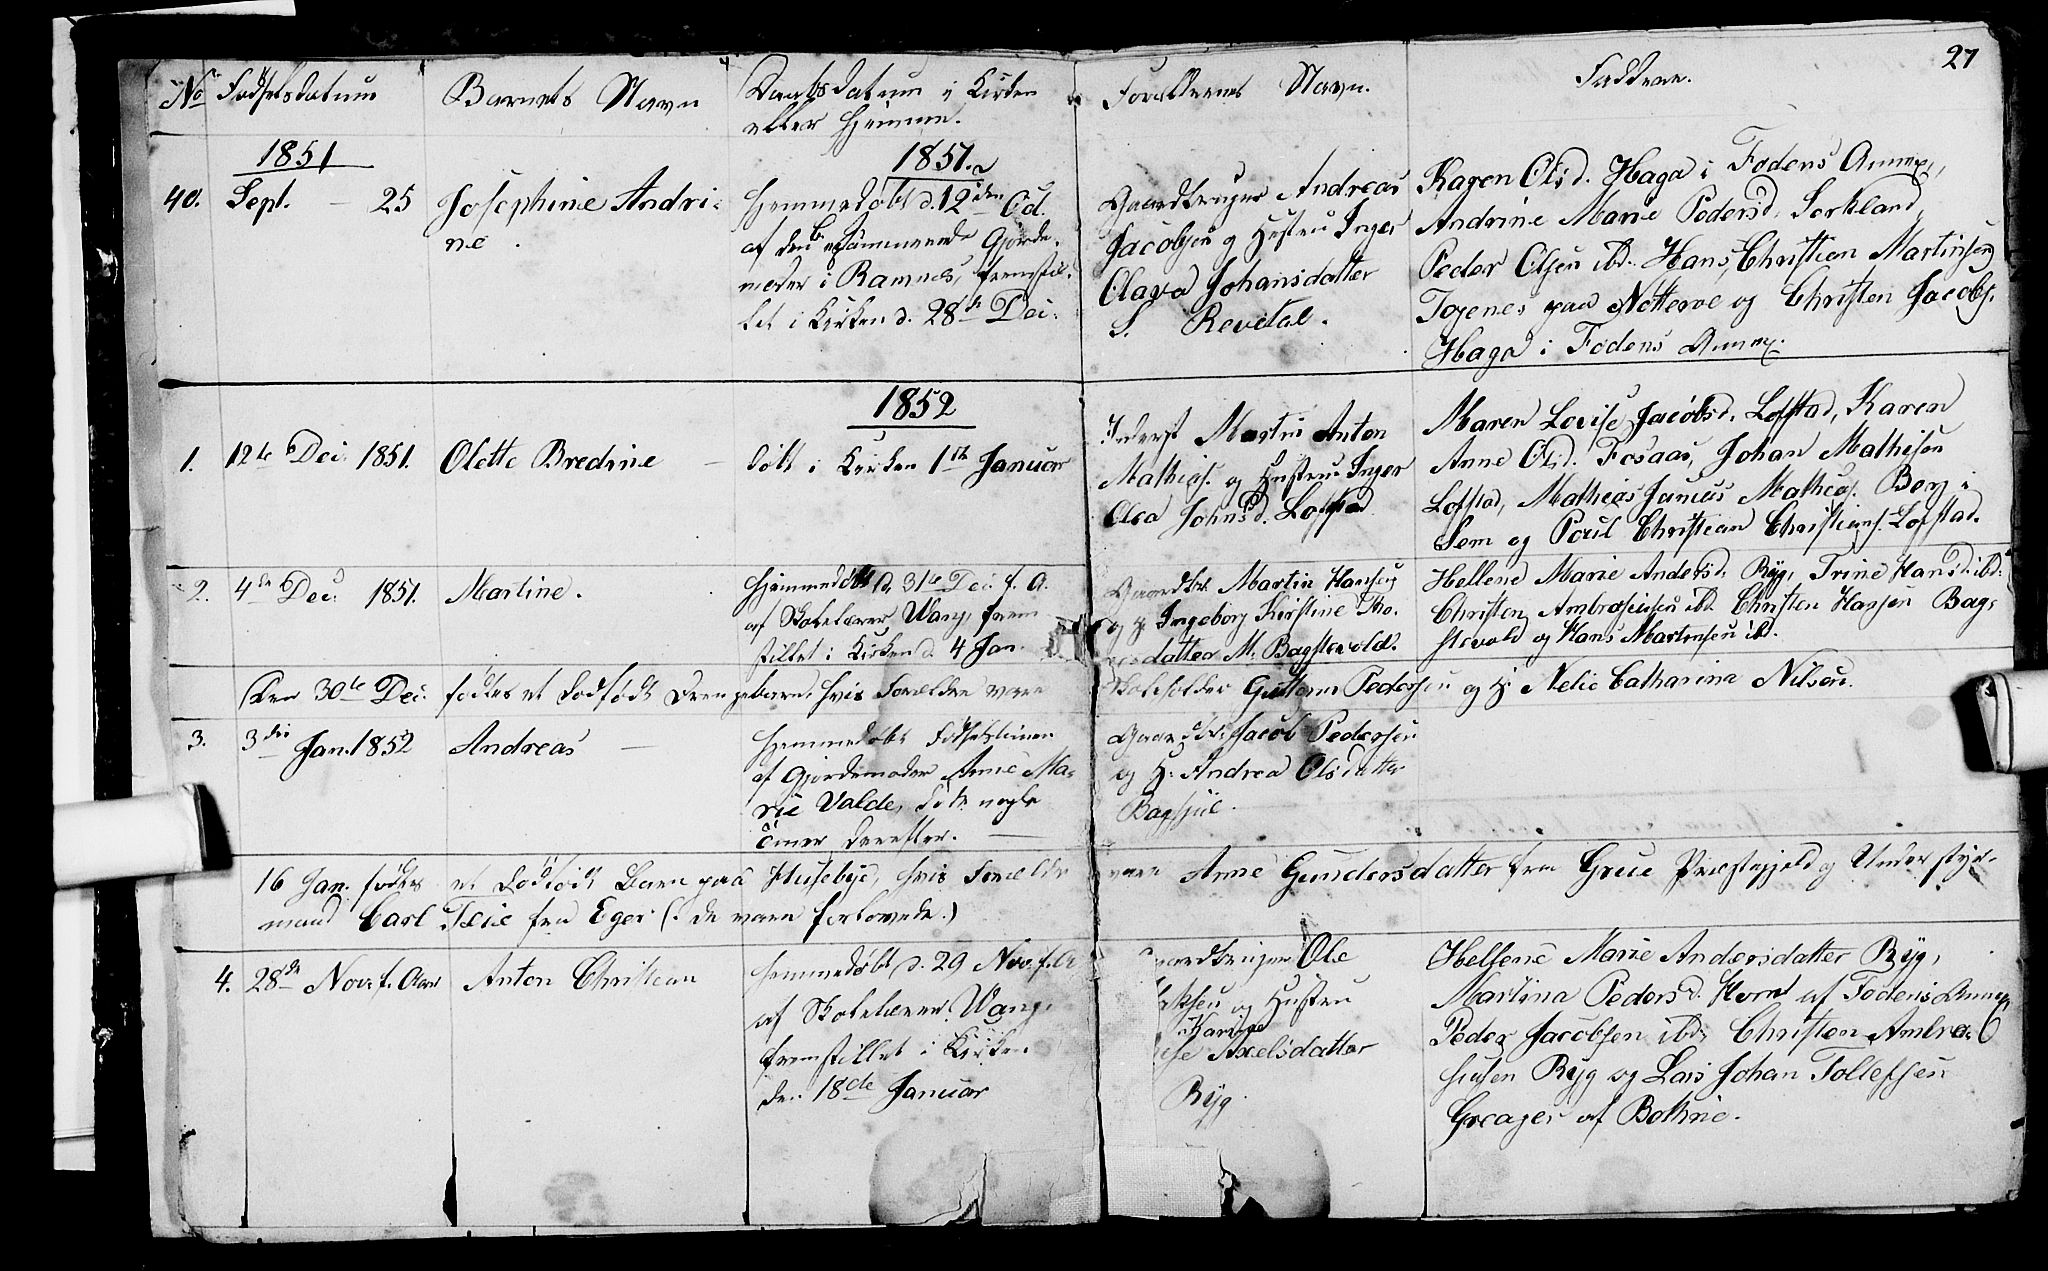 27
No Fødselsdatum Barnets Navn Daabsdatum i Kirken
eller Hjemme. Forældrenes Navn. Faddere.
1851 1851.
40. Sept. - 25 Josephine Andri-
ne.
Hjemmedøbt d. 12 den Oct.
af den examinerede Gjorde-
moder i Ramnes, fremstil-
let i Kirken d. 28de Dec.
Gaardbruger Andreas
Jacobsen og Hustru Inger
Olava Johansdatter
S. Revetal.
Karen Olsd. Haga i Fodens Annex,
Andrine Marie Pedersd. Sorkland,
Peder Olsen ibd. Hans Christian Martinsen
Togenes paa Nøtterøe og Christen Jacobs.
Haga i Fodens Annex.
1852
1. 12te Dec. 1851. Olette Bredine - døbt i Kirken 1ste Januar
Inderst Martin Anton
Mathias. og Hustru Inger
Olea Johnsd. Lofstad
Maren Lovise Jacobsd. Lofstad, Karen
Anne Olsd. Fosaas, Johan Mathisen
Lofstad, Mathias Mathias. Berg i
Sem og Poul Christian Christians. Lofstad.
2. 4de Dec. 1851. Martine.
Hjemmedøbt d. 31te Dec. f. A.
af Skolelærer Wang, frem
stillet i Kirken d. 4 Jan.
Gaardbr. Martin Hansen
og H. Ingeborg Kirstine Tho-
datter M. Bagstevold.
Hellene Marie Andersd. Ryg, Trine Hansd. ibd.
Christen Ambrosiusen ibd. Christen Hansen Bag-
stevold og Hans Martinsen ibd.
Den 30te Dec. fødtes et dødfødt Drengebarn, hvis Forældre vare Skoleholder Guttorm Pedersen og H. Nelie Catharina Nilsen.
3. 3die Jan. 1852 Andreas -
Hjemmedøbt Fødselstimen
af Gjordemoder Anne Ma-
rie Valde, døde nogle
Timer derefter. -
Gaardbr. Jacob Pedersen
og H. Andrea Olsdatter
16 Jan. fødtes et dødfødt Barn paa Husebye, hvis Forældre vare Anne Gundersdatter fra Grue Præstegjeld og Understyr-
mand Carl Teie fra Eger (: de vare forlovede.)
4. 28de Nov. f. Aar Anton Christian
Hjemmedøbt d. 29 Nov. f. A.
af Skolelærer Wang,
fremstillet i Kirken
den 18de Januar
Gaardbruger Ole
og Hustru
Karine
Axelsdatter
Ryg.
Hellene Marie Andersdatter Ryg,
Martina Pedersd. Horn af Fodens Annex
Peder Jacobsen ibd. Christen Ambro-
siusen Ryg og Lars Johan Tollefsen
Greager af Bothne.